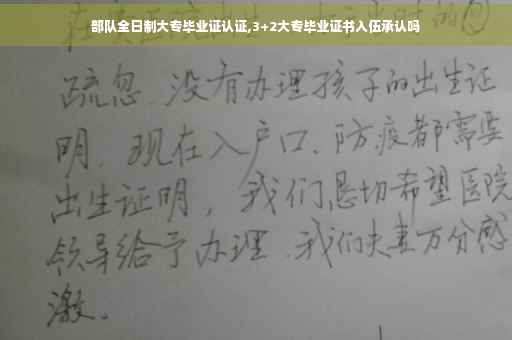 部队全日制大专毕业证认证,3+2大专毕业证书入伍承认吗
疏忽、没有办理孩子的出生证
明、现在入户口、防疫都需要
出生证明，我们恳切希望医院
领导给予办理、我们夫妻万分感
激。